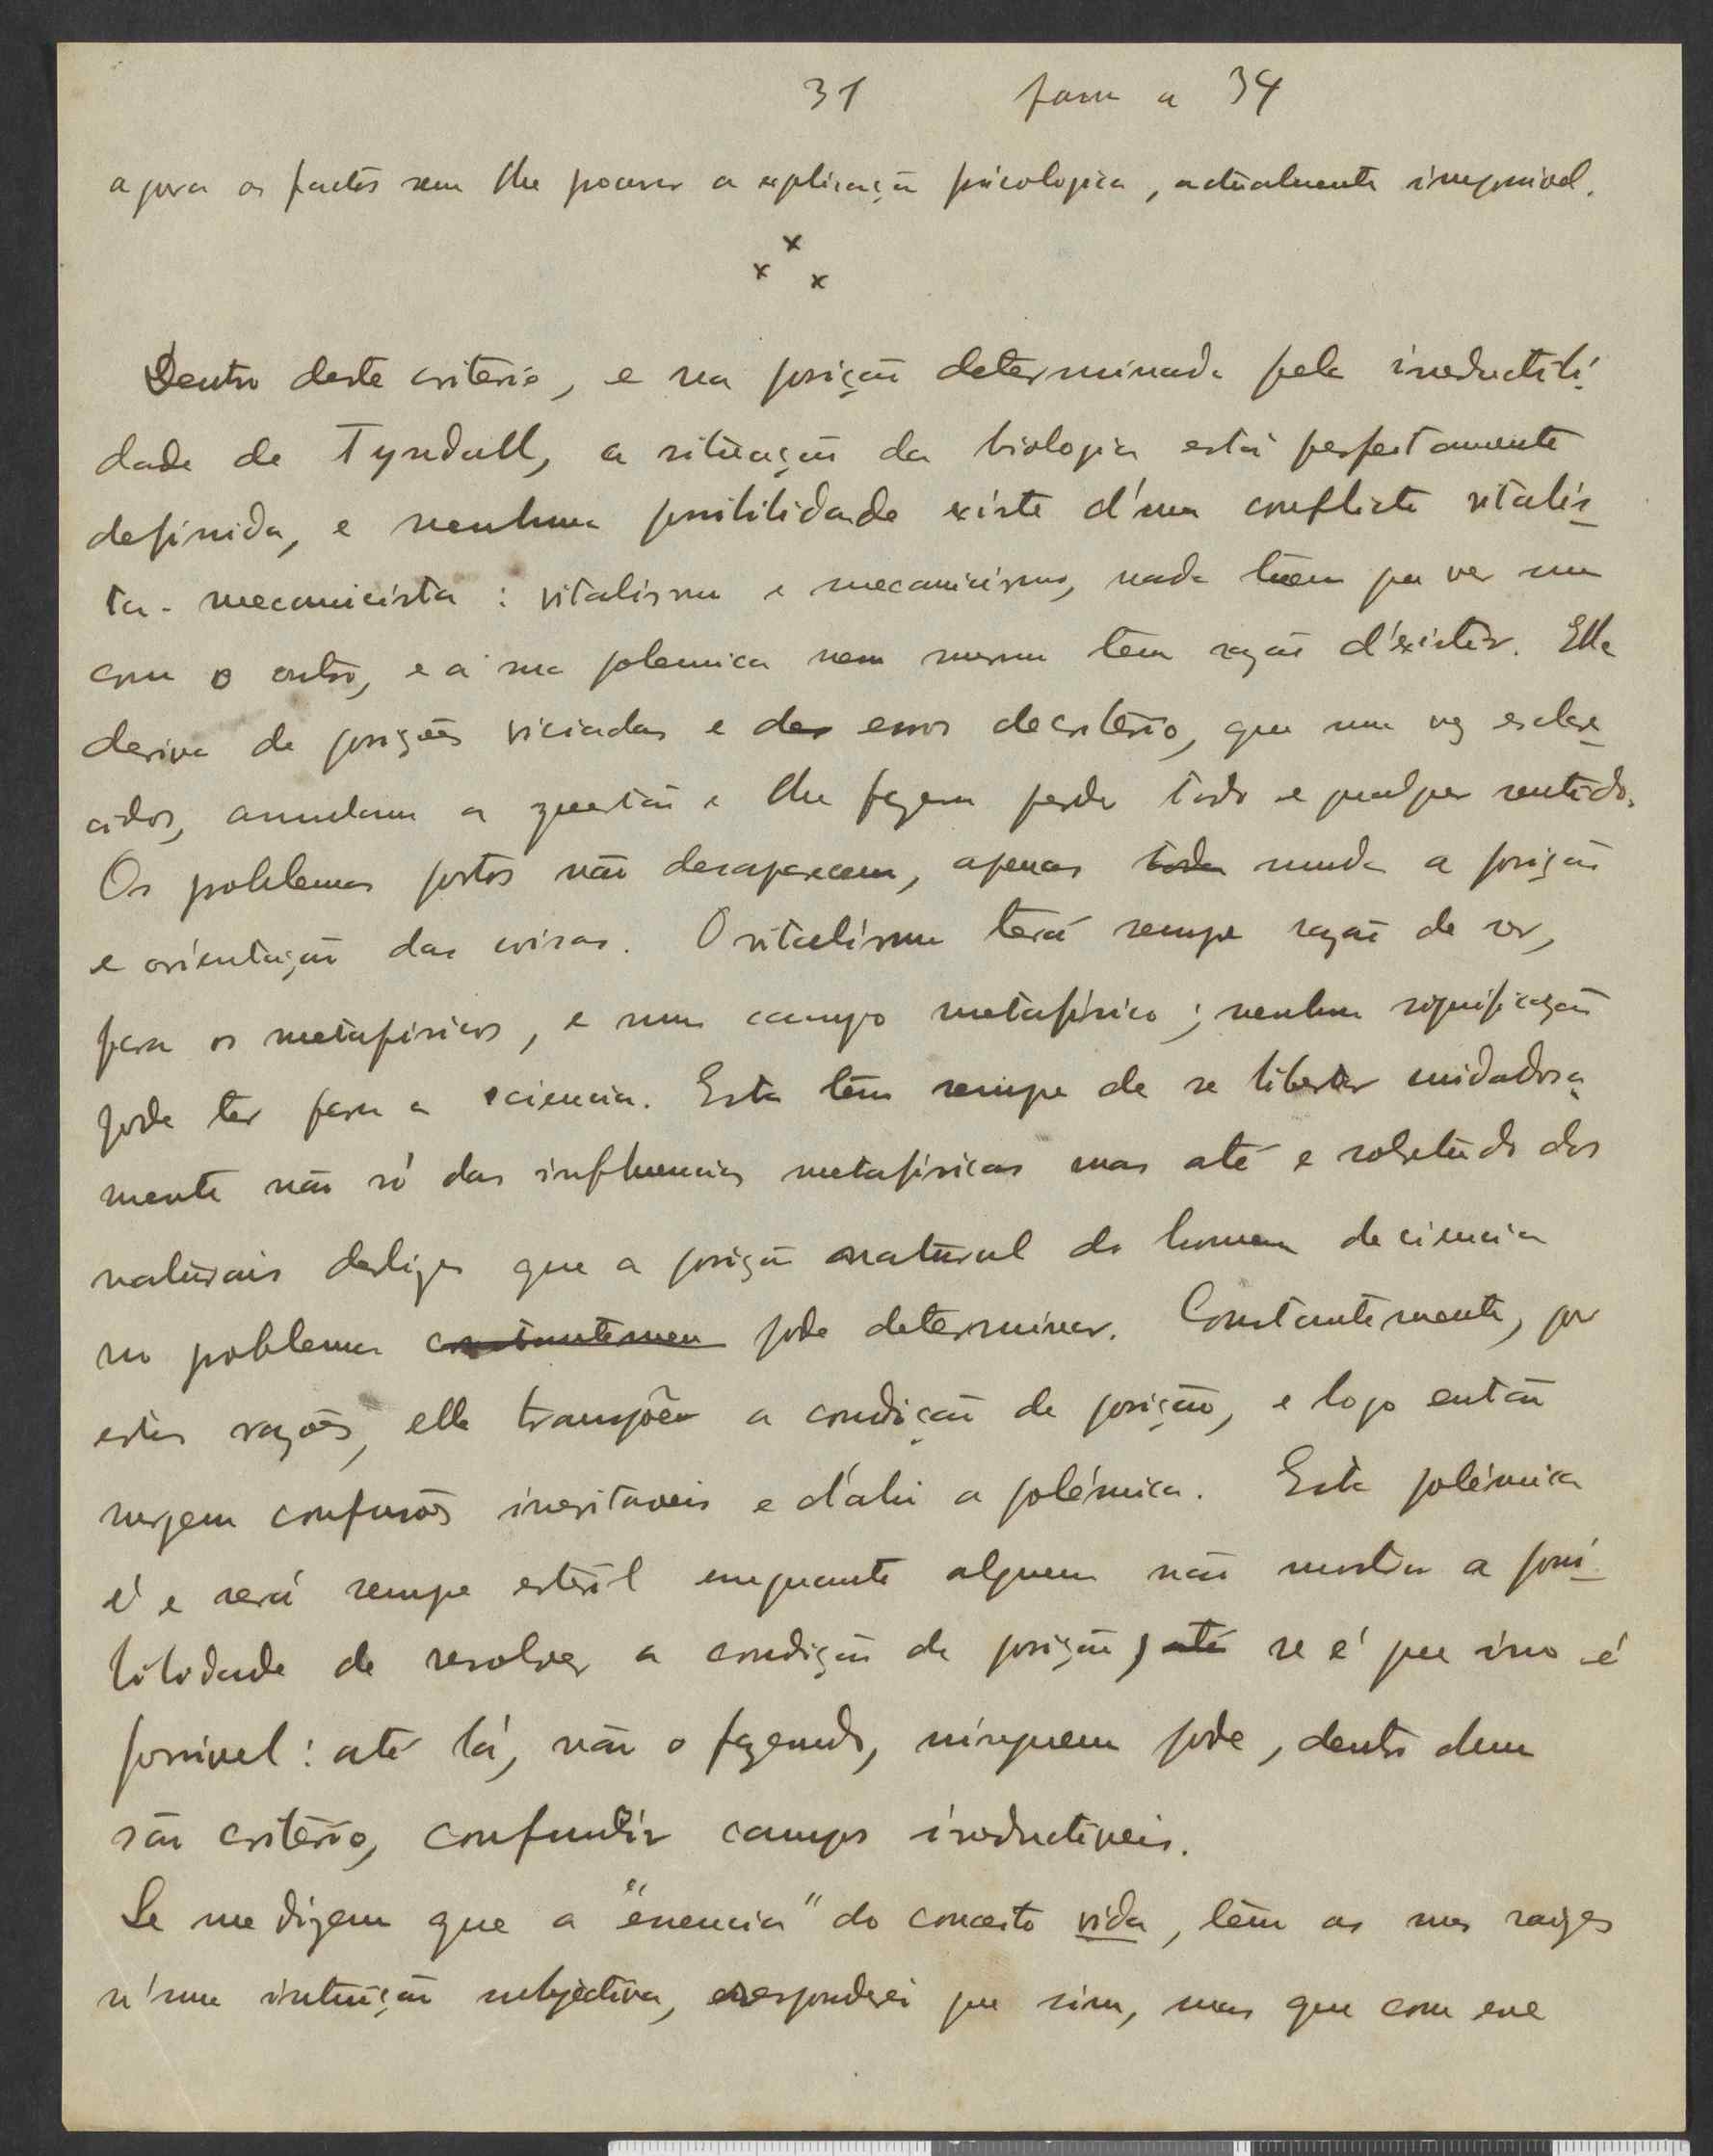 31 para a 34
agora os factos sem lhe procurar a explicação psicologica, actualmente impossivel.
x
x x
Dentro deste criterio, e na posição determinada pela ireductibi-
dade de Tyndall, a situação da biologia está perfeitamente
definida, e nenhuma possibilidade existe d'um conflicto vitalis-
ta-mecanicista: vitalismo e mecanicismo, nada teem que ver um
com o outro, e a sua polemica nem mesmo tem razão d'existir. Ella
deriva de posições viciadas e de erros de criterio, que uma vez esclare-
cidos, annulam a questão e lhe fazem perder todo e qualquer sentido.
Os problemas postos não desaparecem, apenas toda muda a posição
e orientação das coisas. O vitalismo terá sempre razão de ser,
para os metafisicos, e num campo metafisico; nenhuma significação
pode ter para a sciencia. Esta têm sempre de se libertar cuidadosa-
mente não só das influencias metafisicas mas até e sobretudo dos
naturais deslizes que a posição natural do homem de ciencia
no problema constantemen pode determinar. Constantemente, por
estas razões, elle transpõe a condição de posição, e logo então
surgem confusões inevitaveis e d'ahi a polémica. Esta polémica
é e será sempre esteril emquanto alguem não mostrar a possi-
bilidade de resolver a condição de posição, até se é que isso é
possivel: até lá, não o fazendo, ninguem pode, dentro dum
são criterio, confundir campos ireductiveis.
Se me dizem que a "essencia" do conceito vida, têm as suas raizes
n'uma intuição subjectiva, responderei que sim, mas que com esse